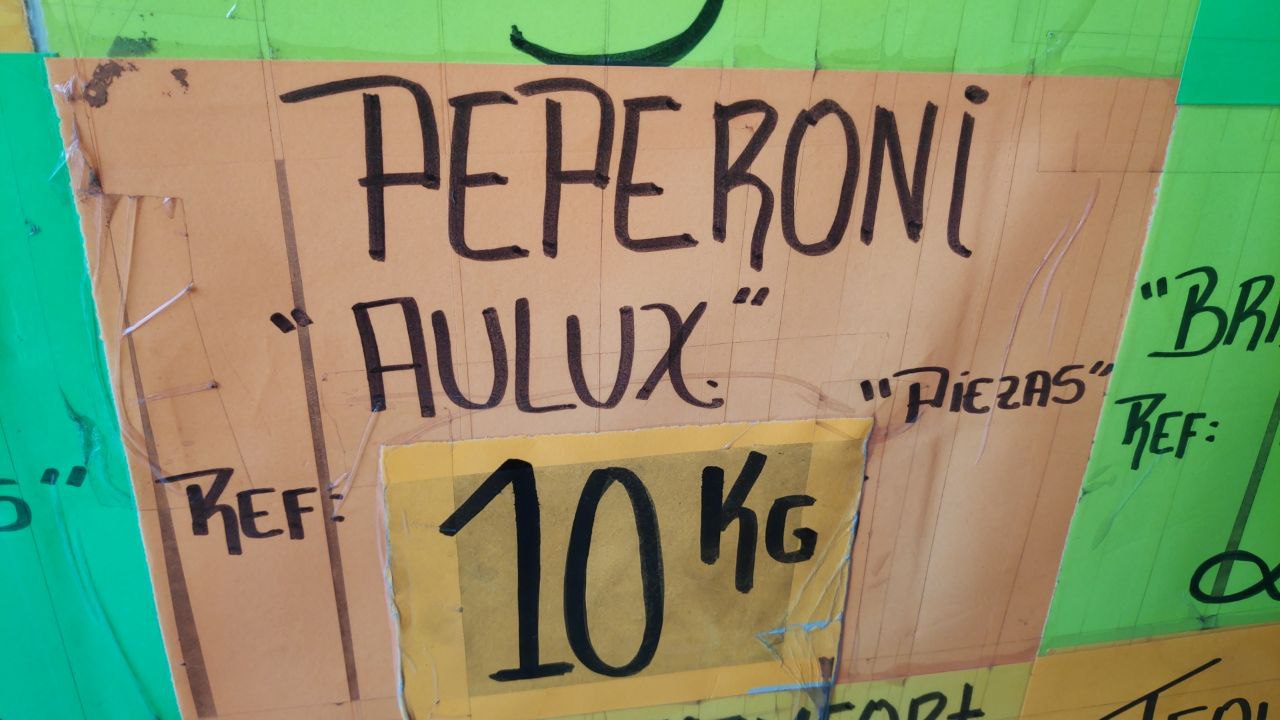 PEPERONI
"AULUX."
"PIEZAS"
REF:
10 KG
REF: